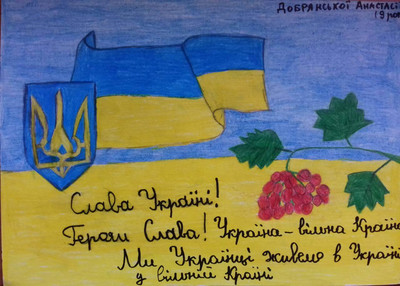 Добрянської Анастасі
19 рок
Слава Україні!
Героям Слава! Україна – вільна Країна
Ми Українці живемо в Україні
у вільній Країні